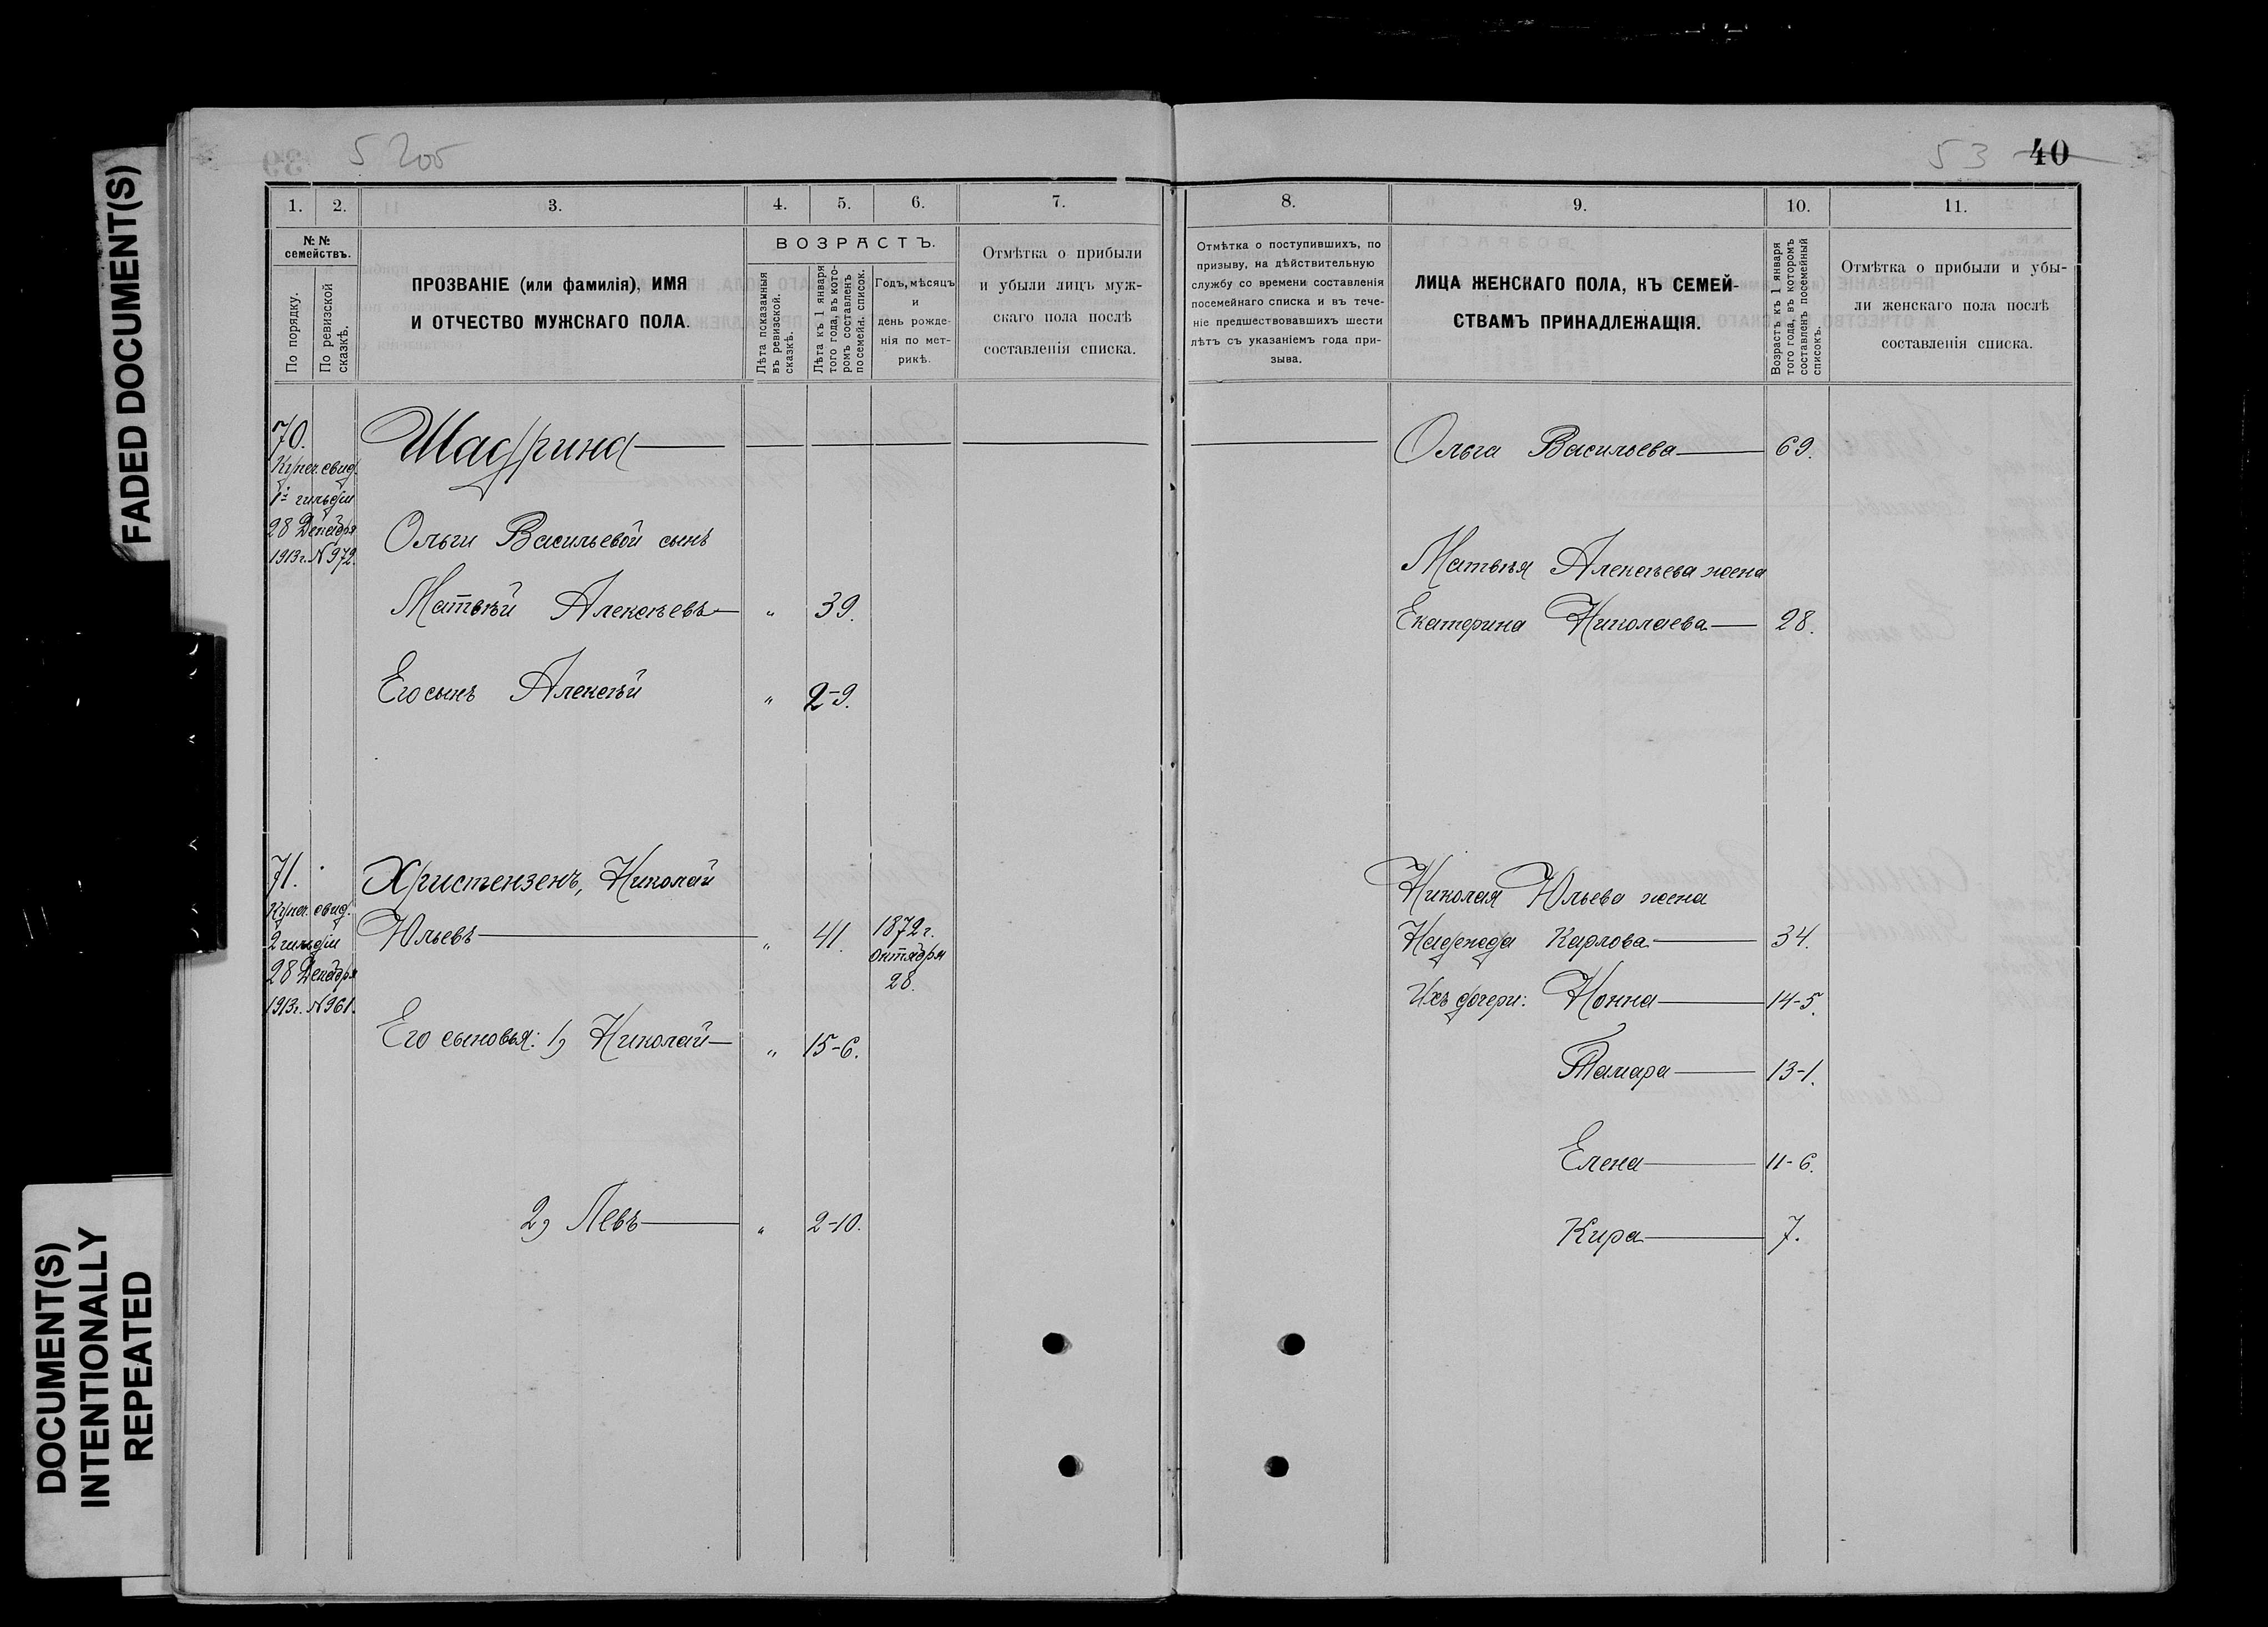 FADED DOCUMENT(S)
DOCUMENT(S)
INTENTIONALLY
REPEATED
5 205
53 40
1. 2. 3. 4. 5. 6. 7.
№ №
семействъ.
По порядку.
По ревизской
сказкѣ.
ПРОЗВАНІЕ (или фамилія), ИМЯ
И ОТЧЕСТВО МУЖСКАГО ПОЛА.
ВОЗРАСТЪ.
Лѣта показанныя
въ ревизской.
сказкѣ.
Лѣта къ 1 января
того года, въ кото-
ромъ составленъ
посемейн. список.
Годъ, мѣсяцъ
и
день рожде-
нія по мет-
рикѣ.
Отмѣтка о прибыли
и убыли лицъ муж-
скаго пола послѣ
составленія списка.
70.
Купеч. свид.
1й гильдіи
28 Декабря
1913 г. N 972.
Шадрина
Ольги Васильевой сынъ
Матвѣй Алексѣевъ " 39.
Его сынъ Алексѣй " 2-9.
71.
Купеч. свид.
2 гильдіи
28 Декабря
1913 г. N 961.
Христензенъ, Николай
Юльевъ " 41. 1872 г.
октября
28.
Его сыновья: 1, Николай " 15-6.
2, Левъ " 2-10.
8. 9. 10. 11.
Отмѣтка о поступившихъ, по
призыву, на дѣйствительную
службу со времени составленія
посемейнаго списка и въ тече-
ніе предшествовавшихъ шести
лѣтъ съ указаніемъ года при-
зыва.
ЛИЦА ЖЕНСКАГО ПОЛА, КЪ СЕМЕЙ-
СТВАМЪ ПРИНАДЛЕЖАЩІЯ.
Возрастъ къ 1 января
того года, въ которомъ
составленъ посемейный
списокъ.
Отмѣтка о прибыли и убы-
ли женскаго пола послѣ
составленія списка.
Ольга Васильева 69.
Матвѣя Алексѣева жена
Екатерина Николаева 28.
Николая Юльева жена
Надежда Карлова 34.
Ихъ дочери: Нонна 14-5.
Тамара 13-1.
Елена 11-6.
Кира 7.